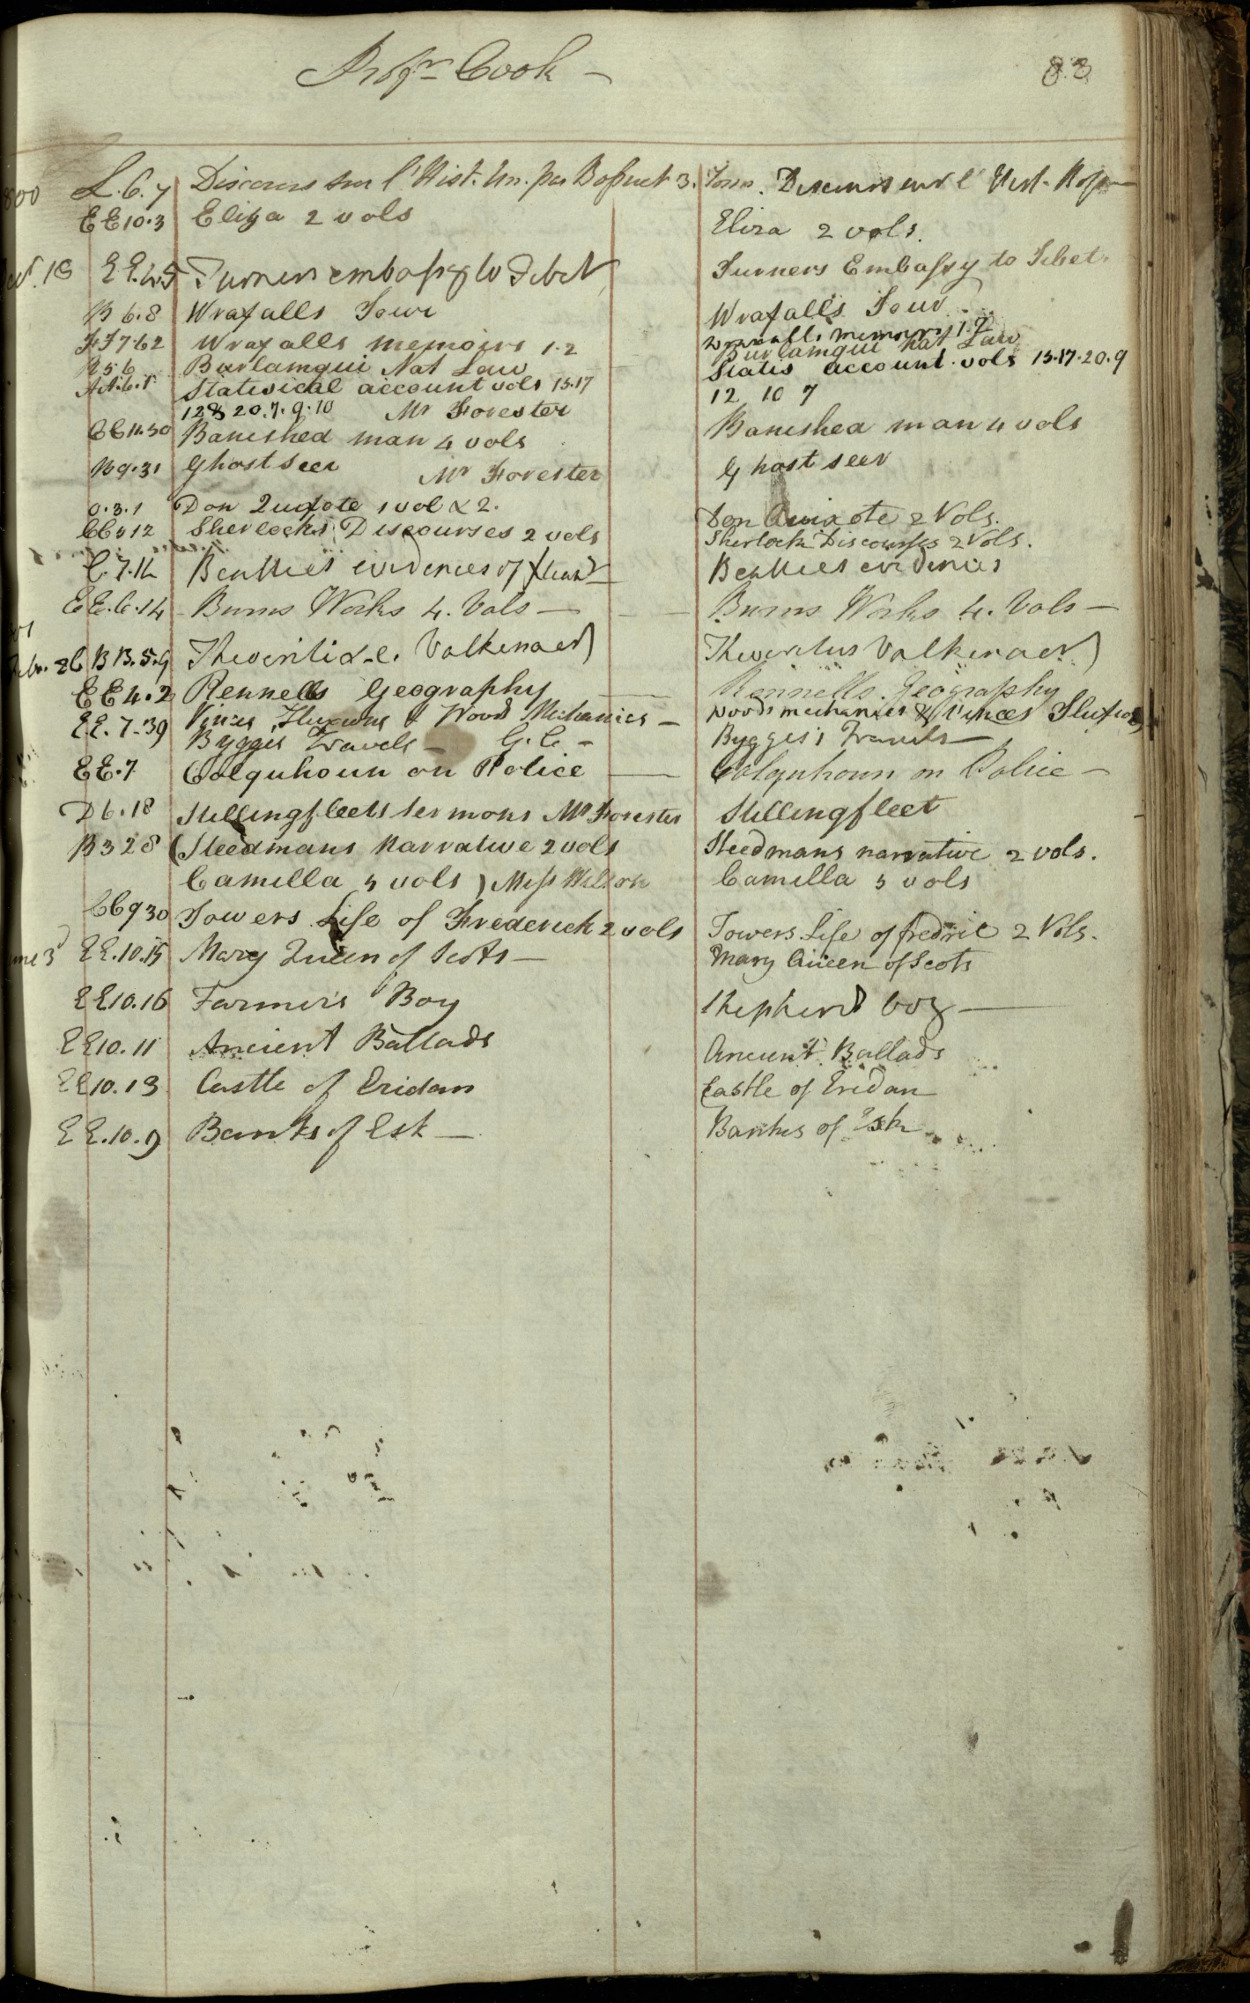 Profr. Cook —
83
800 L.6.7 Discours sur l'Hist. Un. par Bossuet 3. Tom. Discours sur l' Hist.
EE10.3 Eliza 2 vols Eliza 2 vols.
18 EE.4.5 Turners embassy to Tibet Turners Embassy to Tibet
B 6.8 Wraxalls Tour Wraxalls Tour
FF7.62 Wraxalls memoirs 1.2 Wraxalls memoirs 1.2
B 5 6 Burlamqui Nat Law Burlamqui Nat Law
Statisical account vols 15.17 Statis account vols 15.17.20.9
12 & 20.7.9.10 Mr Forester 12 10 7
CC11.30 Banished man 4 vols Banished man 4 vols
B9.31 Ghost Seer Mr Forester Ghost seer
O.3.1 Don Quixote 1 vol & 2. Don Quixote 2 Vols.
CC312 Sherlocks Discourses 2 vols Sherlock Discourses 2 Vols.
C.7.14 Beatties evidences of Beatties evidences
EE.6.14 Burns Works 4. Vols — Burns Works 4. Vols —
BB.5.9 Theocriti Valkenaer Theocritus Valkenaer
EE4.2 Rennells Geography —— Rennells Geography
Vinces Fluxions & Woods Mechanics — Woods mechanics & Vinces Fluxions
EE.7.39 Bygges Travels — G.C. — Bygges's Travels —
EE.7 Colquhoun on Police —— Colquhoun on Police —
D6.18 Stillingfleets sermons Mr Forester Stillingfleet
B328 (Steedmans Narrative 2 vols Steedmans narrative 2 vols.
Camilla 5 vols ) Miss Camilla 5 vols
CC930 Towers Life of Frederick 2 vols Towers Life of fredric 2 Vols.
3 EE.10.15 Mary Queen of Scots — Mary Queen of Scots
EE10.16 Farmers Boy Shepherd boy —
EE10.11 Ancient Ballads Ancient Ballads
EE10.13 Castle of Eridan Castle of Eridan
EE.10.9 Banks of Esk — Banks of Esk